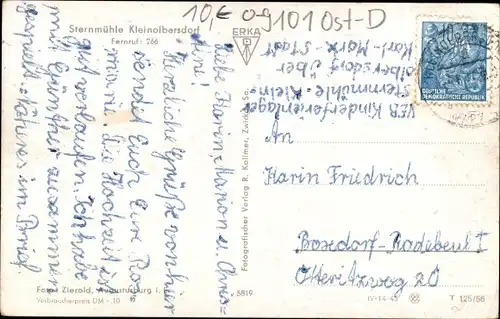 10,€ 09101 Ost-D
Sternmühle Kleinolbersdorf
Fernruf: 266
ERKA
Liebe Karin, Marion u. Chris-
tine!
Herzliche Grüße von hier
sendet Euch Eure Ro-
marie. Die Hochzeit ist
gut verlaufen. Ich habe
mit Günther zusammen
gespielt. Näheres im Brief
VEB Kinderferienlager
Sternmühle Klein-
olbersdorf über
Karl-Marx-Stadt
DEUTSCHE
DEMOKRATISCHE REPUBLIK
An
Karin Friedrich
Boxdorf-Radebeul I
Fotografischer Verlag R. Kallmer, Zwickau Sa.
5819
Foto: Zierold, Augustusburg i.
Verbraucherpreis DM -.10
IV-14-45
T 125/56